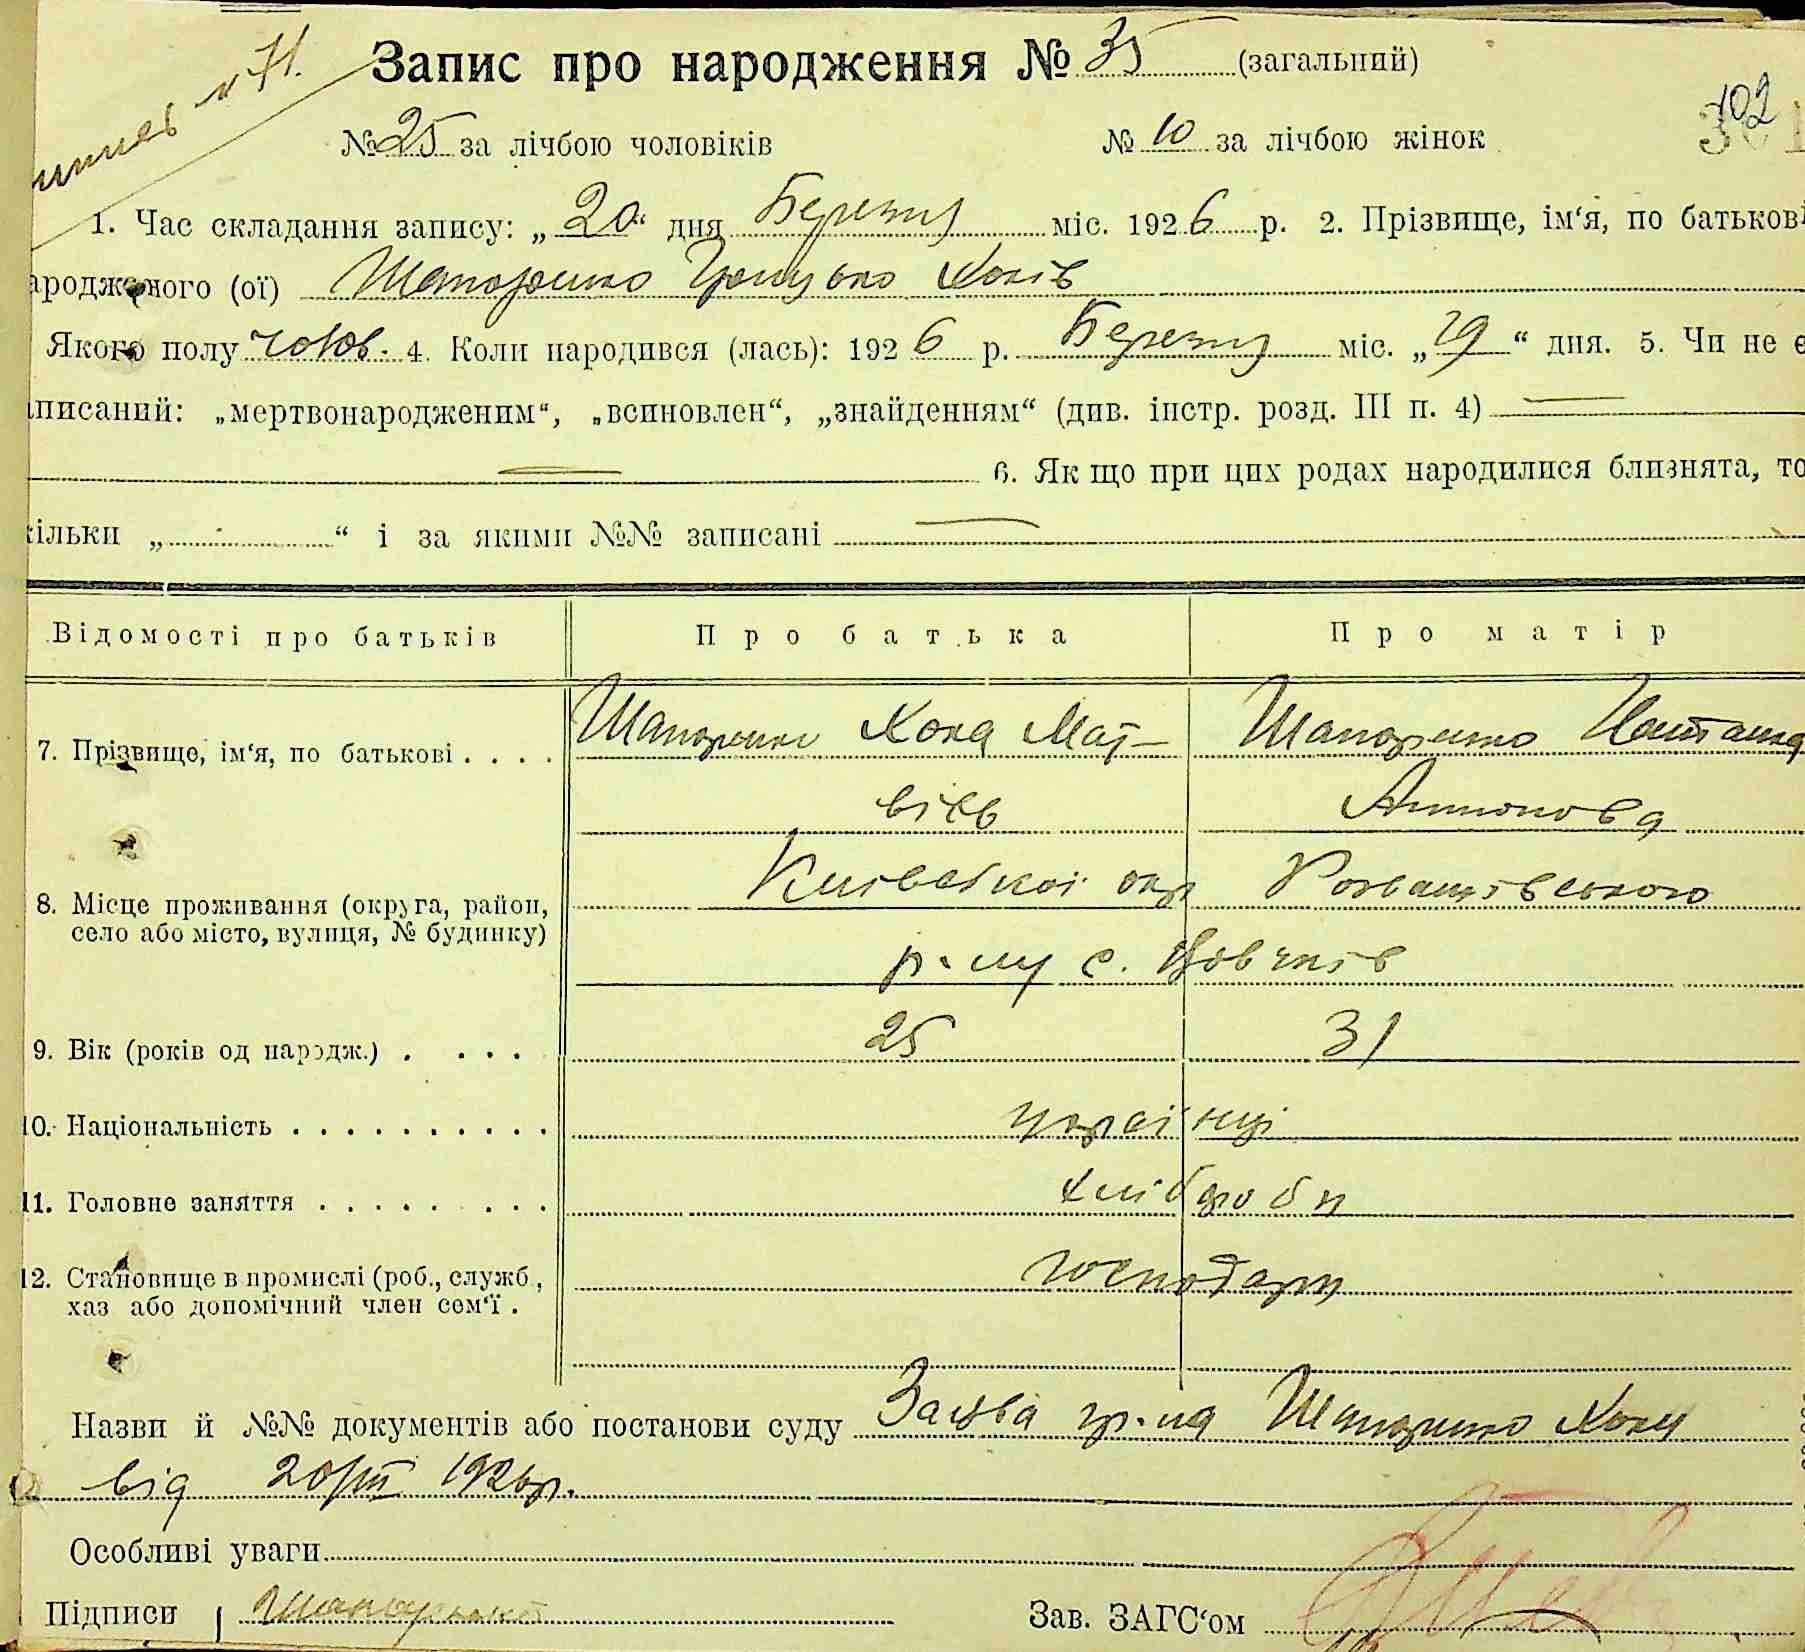 № 71.
Запис про народження № 35 (загальний)
102
№ 25 за лічбою чоловіків № 10 за лічбою жінок
1. Час складання запису: „20“ дня Березня міс. 1926 р. 2. Прізвище, ім‘я, по батькові
ародженого (ої) Шапоренко Грицько Хоків
Якого полу чолов. 4. Коли народився (лась): 1926 р. Березня міс. „19“ дня. 5. Чи не є
аписаний: „мертвонародженим“, „всиновлен“, „знайденням“ (див. інстр. розд. III п. 4) —
— 6. Як що при цих родах народилися близнята, то
кільки „ “ і за якими №№ записані —
Відомості про батьків Про батька Про матір
7. Прізвище, ім‘я, по батькові . . . . Шапоренко Хока Мат- Шапоренко Наталка
вієв Антонова
8. Місце проживання (округа, район, Київської окр Розважівського
село або місто, вулиця, № будинку)
р-ну с.
9. Вік (років од народж.) . . . . 25 31
10. Національність . . . . . . . . . . українці
11. Головне заняття . . . . . . . . . хлібороби
12. Становище в промислі (роб., служб., господарі
хаз або допомічний член сем‘ї .
Назви й №№ документів або постанови суду Заява гр-на Шапоренко Хоки
від 20/III 1926р.
Особливі уваги
Підписи Шапоренко
Зав. ЗАГС‘ом